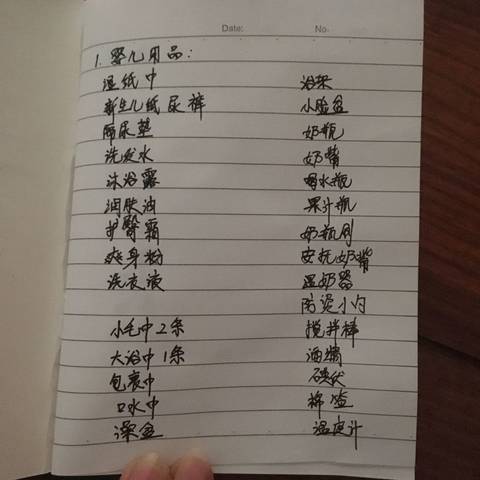 Date:
No.
1. 婴儿用品:
湿纸巾
新生儿纸尿裤
隔尿垫
洗发水
沐浴露
润肤油
护臀霜
爽身粉
洗衣液
小毛巾2条
大浴巾1条
包裹巾
口水巾
澡盆
浴架
小脸盆
奶瓶
奶嘴
喝水瓶
果汁瓶
奶瓶刷
安抚奶嘴
温奶器
防烫小勺
搅拌棒
酒精
碘伏
棉签
温度计